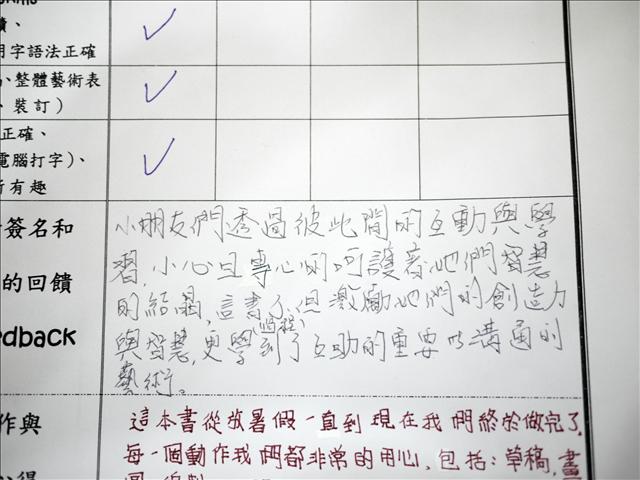 、
用字語法正確
、整體藝術表
、裝訂)
正確、
電腦打字)、
所有趣
簽名和
的回饋
edback
小朋友們透過彼此間的互動與學
習,小心且專心的呵護着他們智慧
的結晶,這書不但激勵他們的創造力
與智慧,更學到(過程)了互助的重要以溝通的
藝術。
作與
心得
這本書從放暑假一直到現在我們終於做完了,
每一個動作我們都非常的用心,包括:草稿,畫
圖